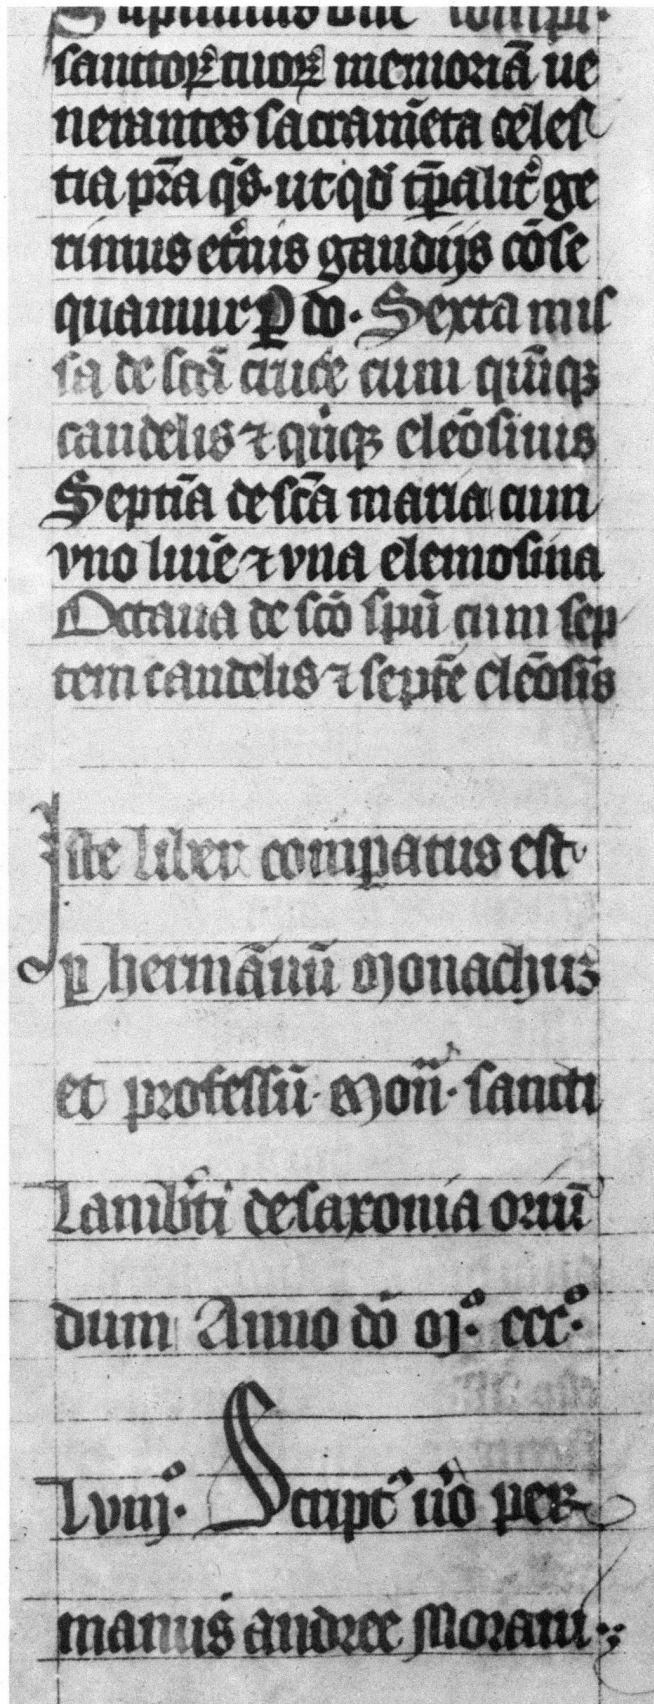 Supimus dne compl.
sanctoꝝ tuoꝝ memoriā ue
nerantes sacramēta celes
tia pr̄a qs̄. ut qd̄ tp̄alit᷑ ge
rimus et᷑nis gaudijs cōse
quamur P̲ do. Sexta mis
sa de sctā cruce cum qūiqꝫ
candelis ⁊ qūiqꝫ eleōsinis
Septīa de sctā maria cum
vno lumīe ⁊ vna elemosina
Octaua de sctō spū cum sep
tem candelis ⁊ septē eleōsīs
Iste liber comꝑatus est
ꝑ hermānū monachuꝫ
et professū. Moñ. sancti
Lamb᷑ti de saxonia oriū
dum Anno dō mͦ. cccͦ.
Lviijͦ. Script᷑ u᷑o per
manus andree Moraui.